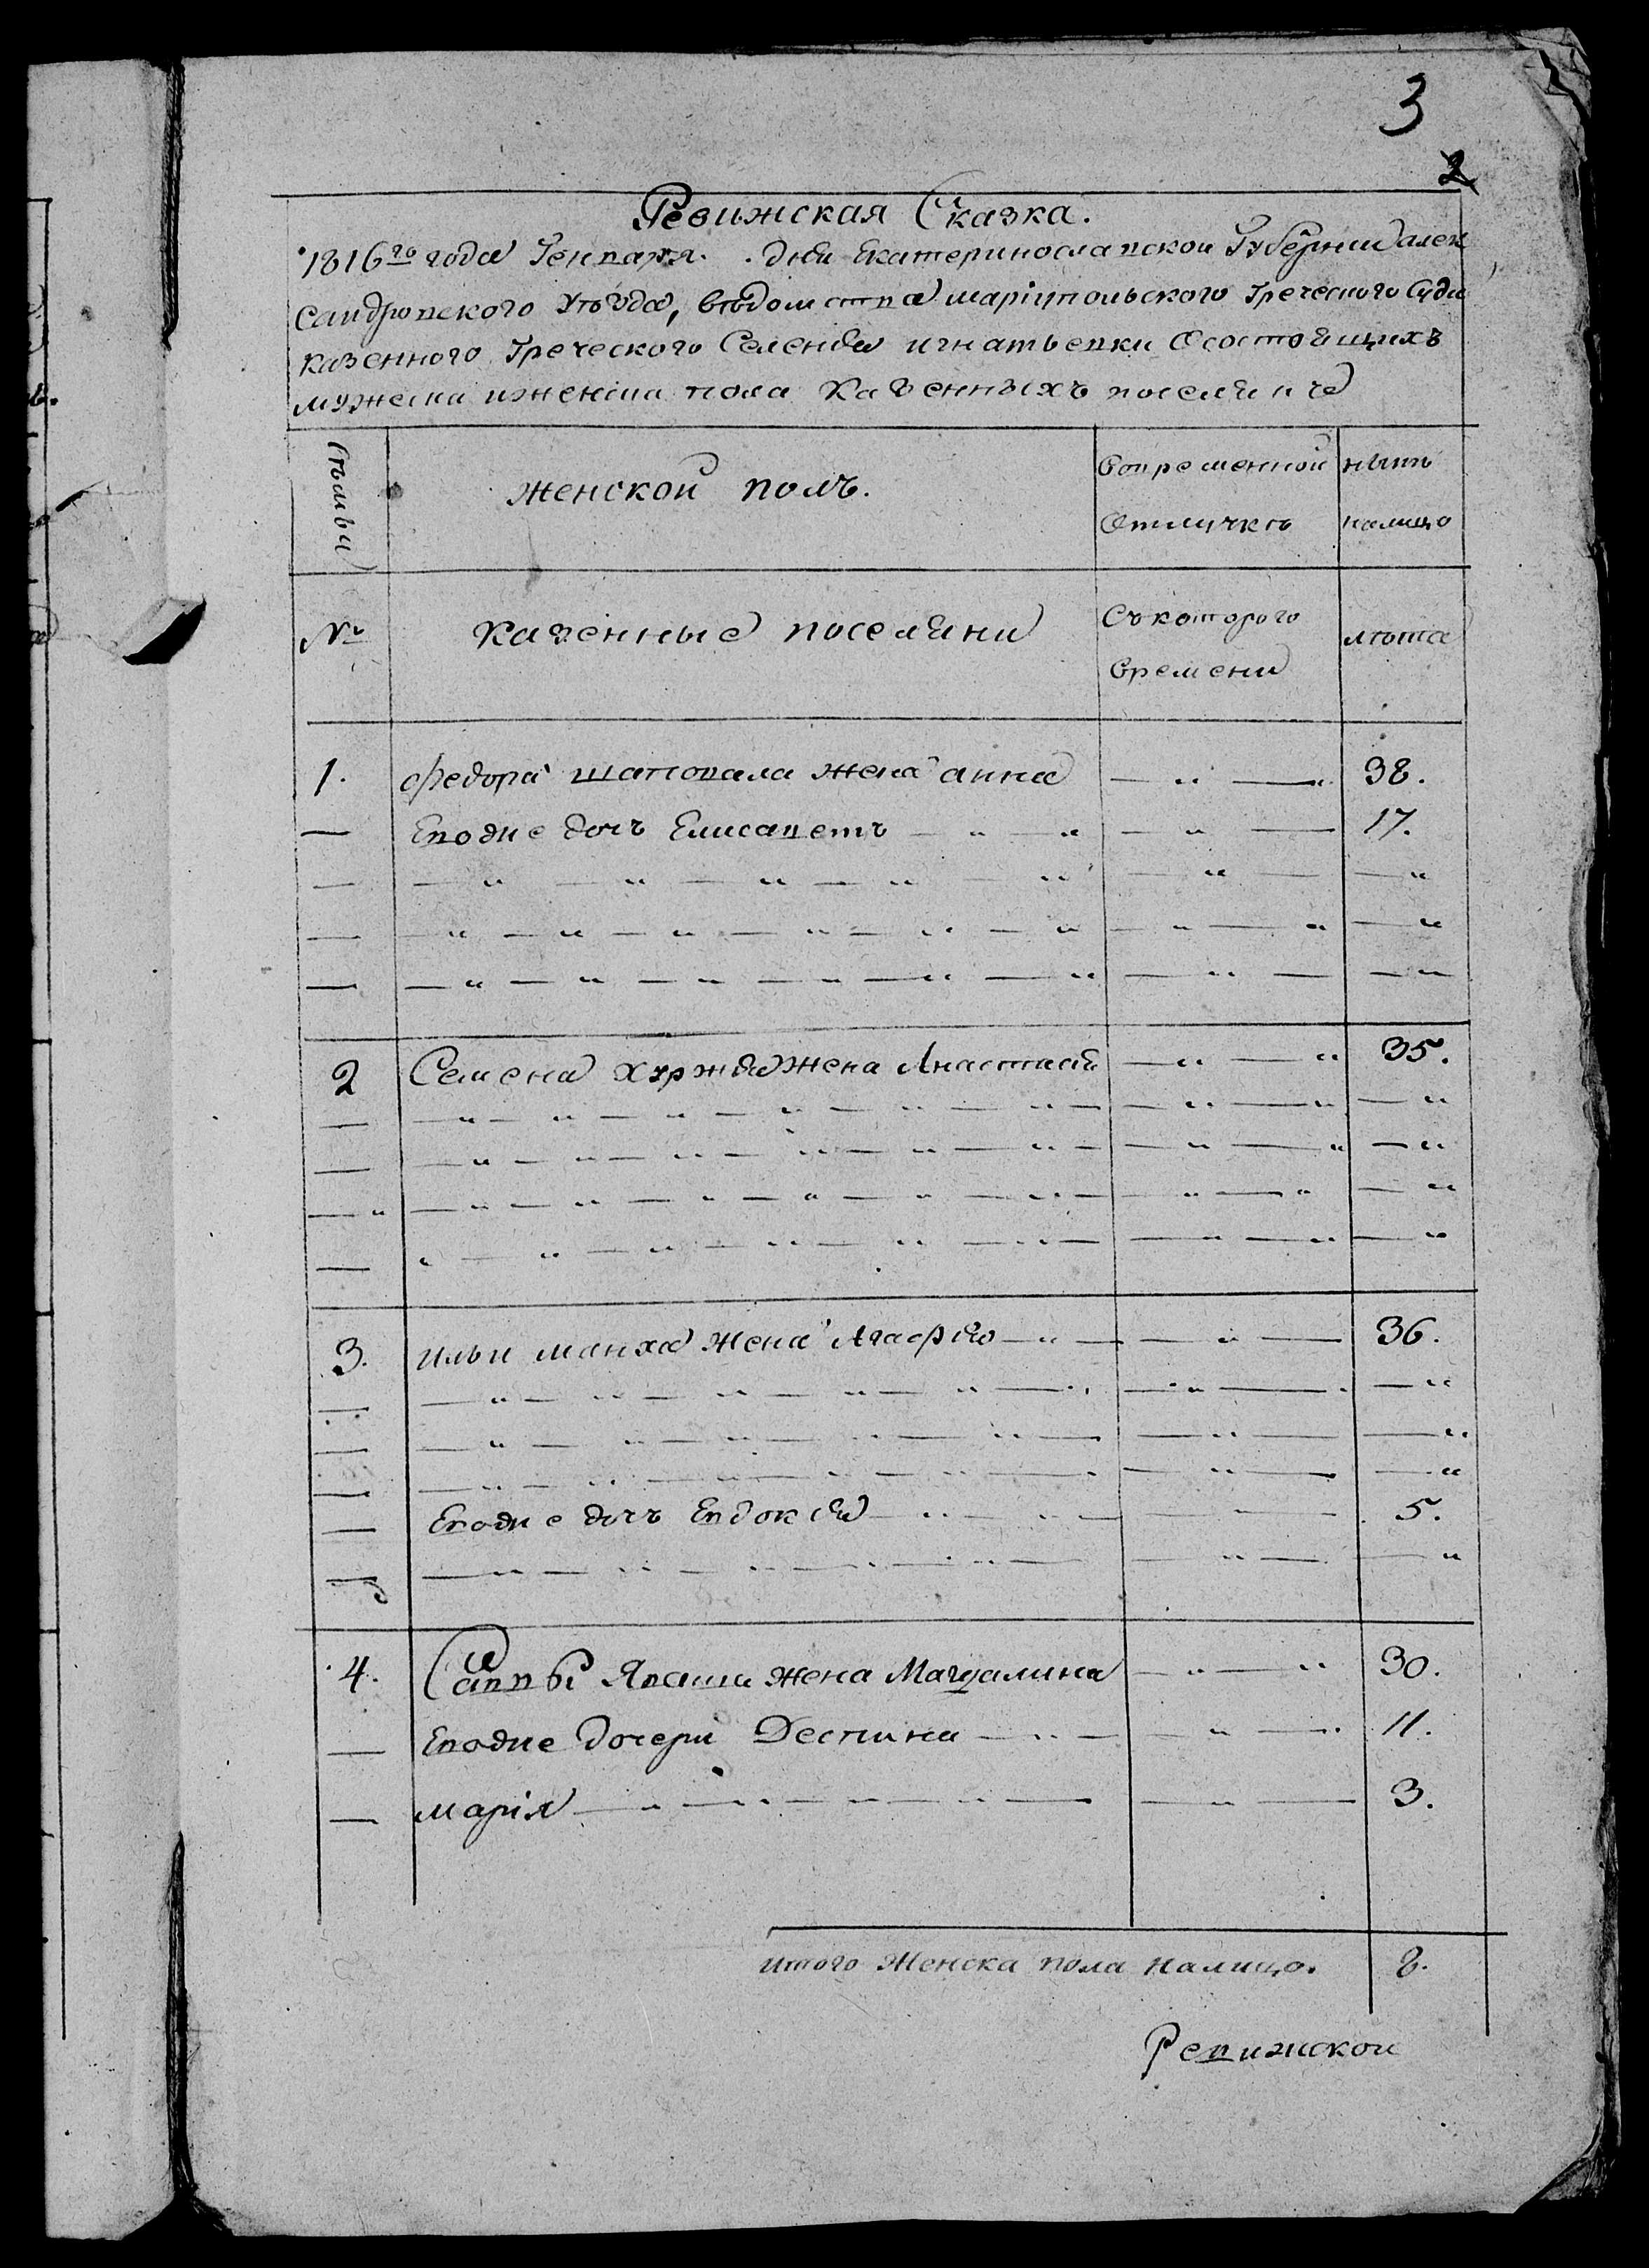 3
2
Ревижская Сказка.
1816го года Генваря. . дня Екатеринославской Губернии Алек
сандровского уѣзда, вѣдомства маріупольского Греческого Суда
казенного Греческого Селенія игнатьевки Осостоящихъ
мужеска иженска пола Казенныхъ поселянѣ
Сѣмьи
женской полъ.
Вовременной
Отлучкѣ
нынѣ
налицо
№
Казенные поселяни
Съкоторого
времени
лѣта
1. федора шаповала жена анна — „ — „ 38.
— Еводне дочь Елисаветъ — „ — „ — „ — 17.
2 Семена жена Анастасія — „ — „ 35.
3. ильи манха жена Агафія — „ — — „ — 36.
— Еводне дочь Евдокія — „ — „ — — — 5.
4. Саввы Яваша жена Магдалина — „ — „ 30.
— Еводне дочери Деспина — „ — — „ — 11.
— марія — „ — „ — „ — „ — — „ — 3.
итого Женска пола налицо. 8.
Ревижской